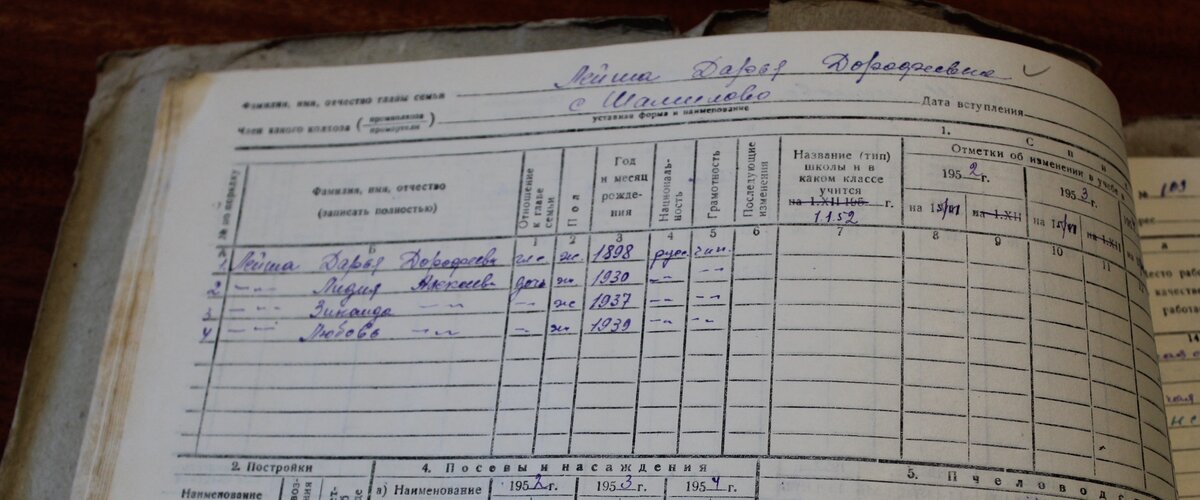 Лейша Дарья Дорофеевна
Фамилия, имя, отчество главы семьи
с Шамилово
Член какого колхоза (промколхоза / промартели)
уставная форма и наименование
Дата вступления
1. Спис
№ по порядку
Фамилия, имя, отчество (записать полностью)
Отношение к главе семьи
Пол
Год и месяц рождения
Националь- ность
Грамотность
Последующие изменения
Название (тип) школы и в каком классе учится на 1.XII 195 г. 1.1.52
Отметки об изменении в учебе
1952 г.
1953 г.
на 15/VI
на 1.XII
на 15/VI
на 1.XII
Б 1 2 3 4 5 6 7 8 9 10 11
1 Лейша Дарья Дорофеевн гла ж. 1898 рус. чит.
2 -"- Лидия Алексеев дочь ж. 1930 -"- -"-
3 -"- Зинаида -"- -"- ж 1937 -"- -"-
4 -"- Любовь -"- -"- ж 1939 -"- -"-
2. Постройки
4. Посевы и насаждения
5. Пчеловод
Наименование
а) Наименование
1952 г. 1953 г. 1954 г.
№ 103
рес
а
Место раб
качестве
работа
14